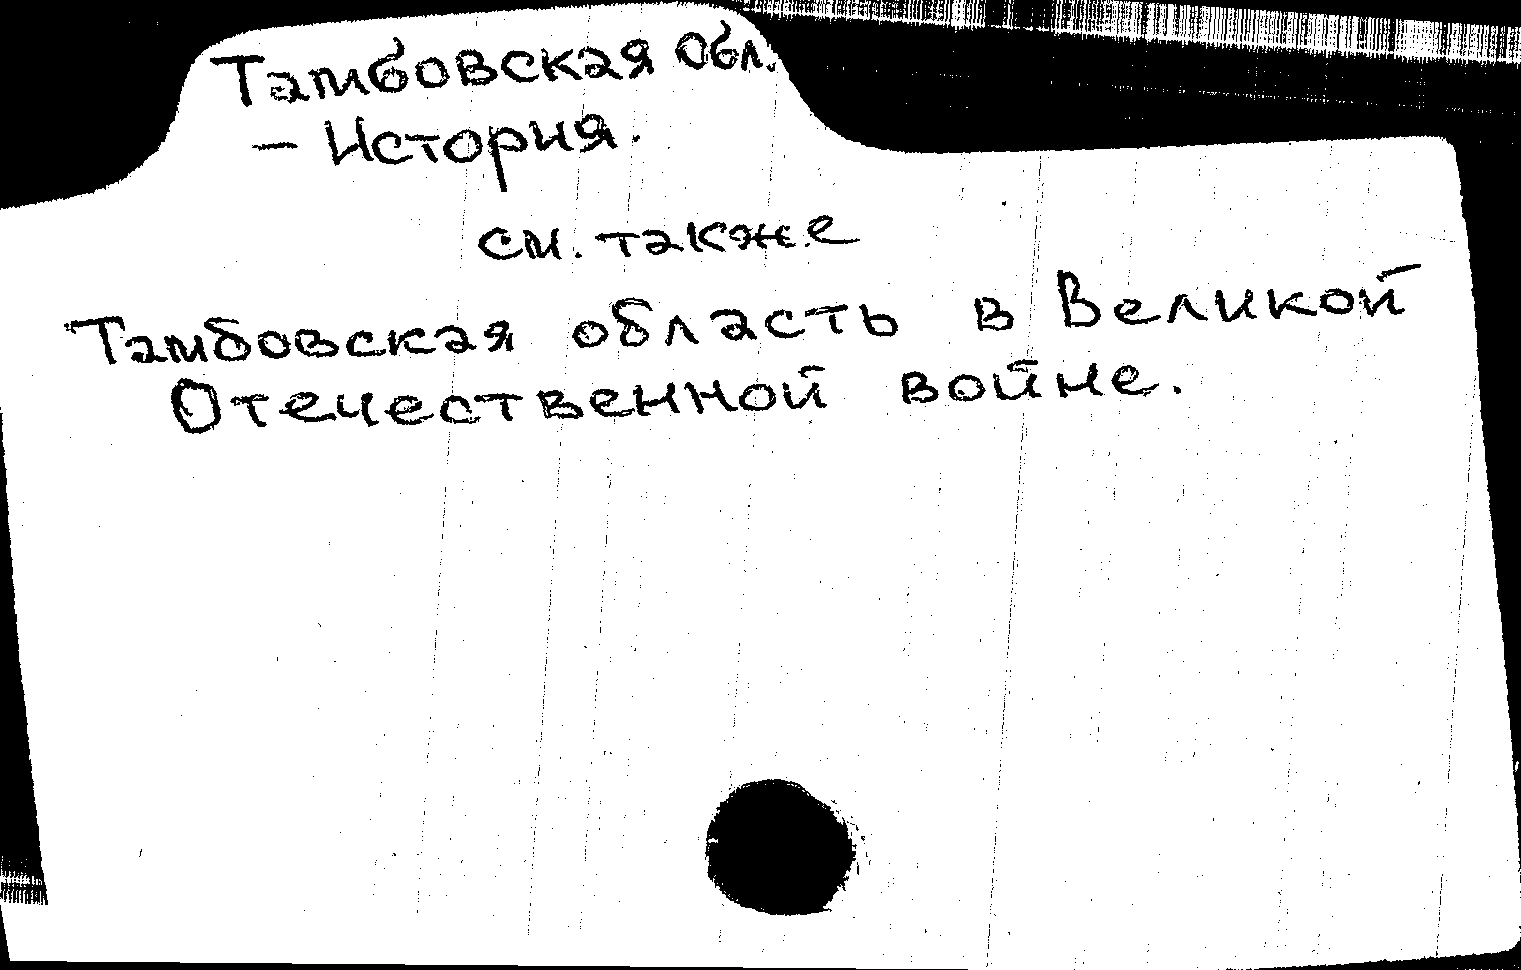 Тамбовская Обл.
– История.
см. также
Тамбовская область в Великой
Отечественной войне.